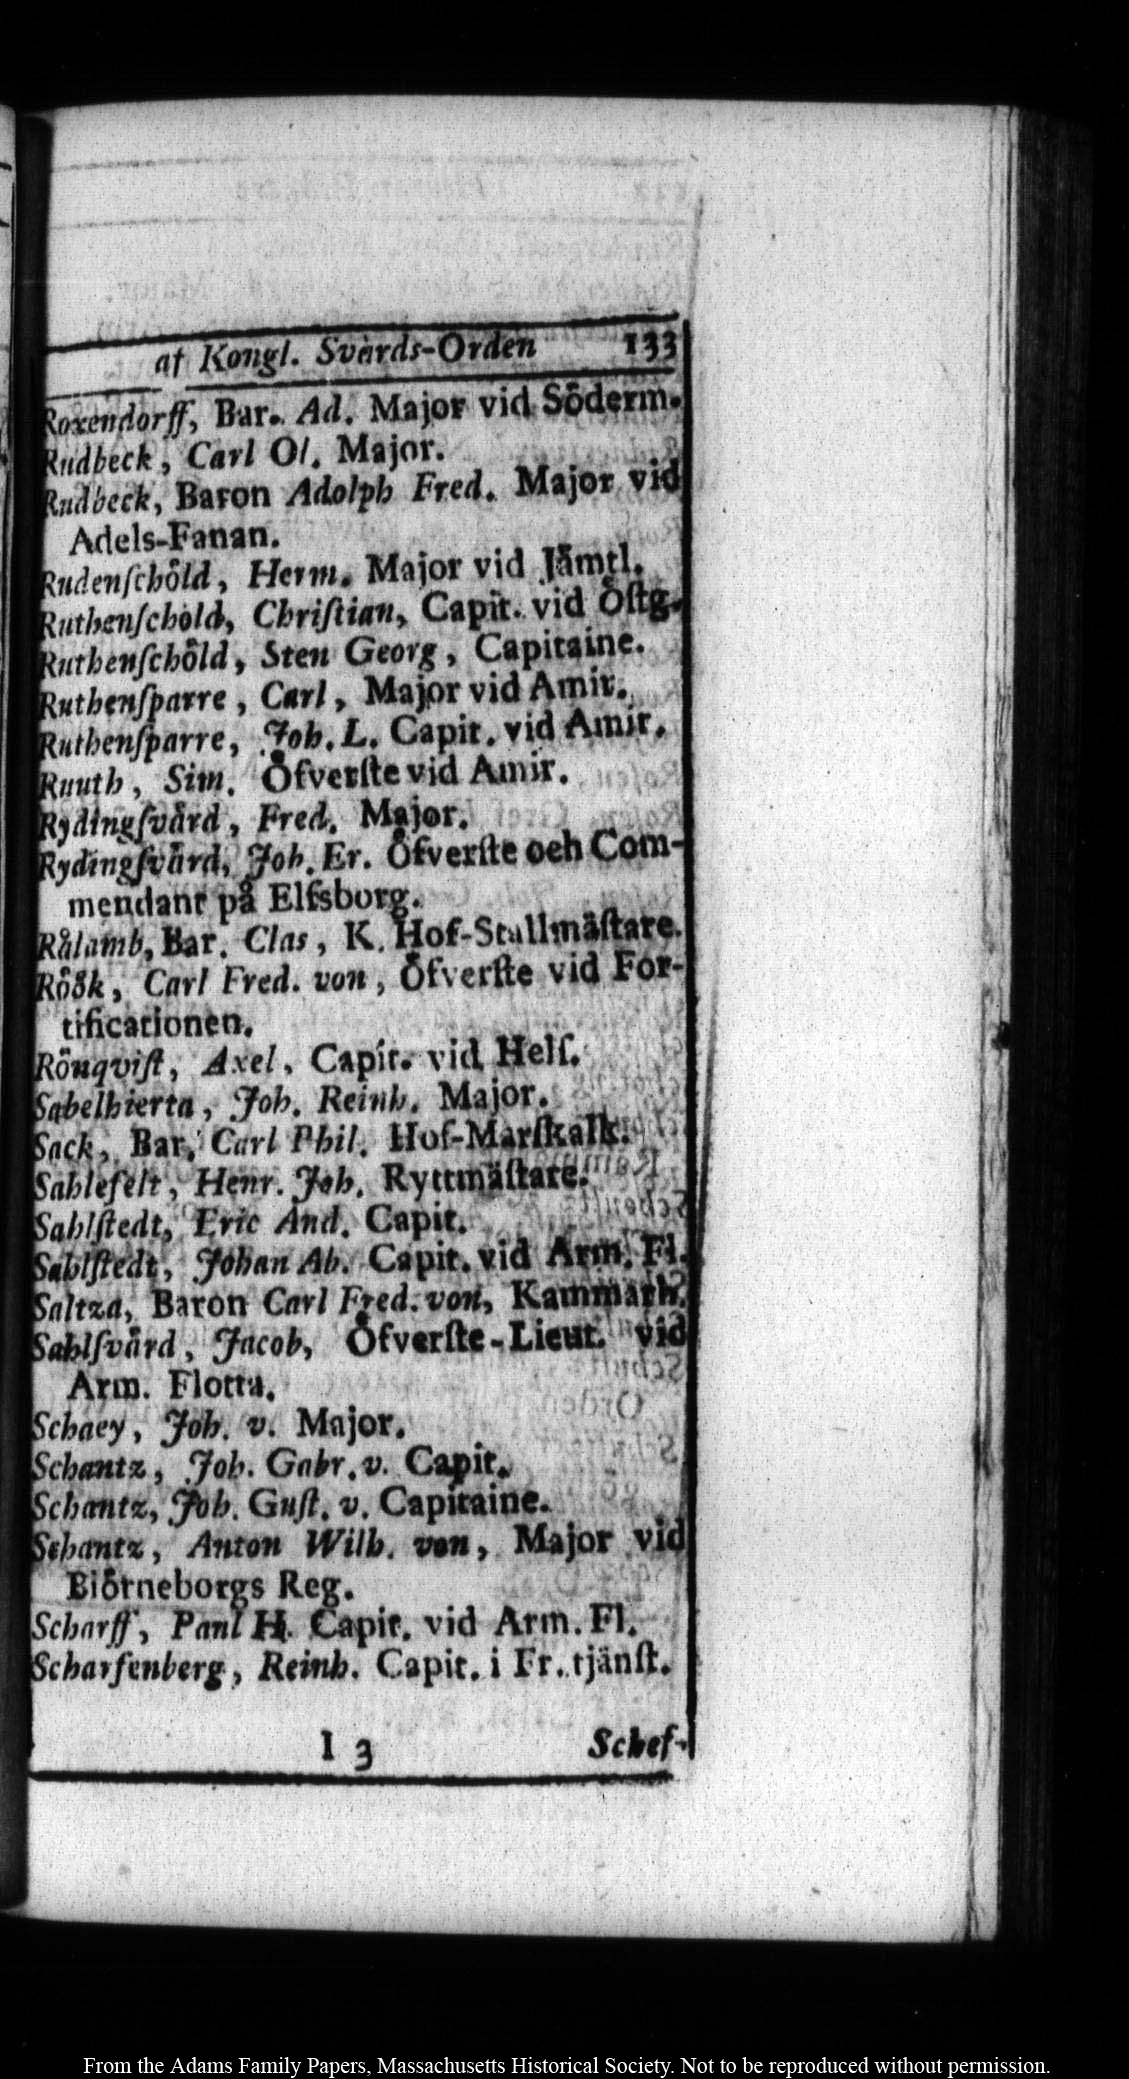 af Kongl. Svårds-Orden 133
Roxendorff, Bar. Ad. Major vid Sôderm.
Rudbeck, Carl Ol. Major.
Rudbeck, Baron Adolph Fred. Major vid
Adels-Fanan.
Rudenſchôld, Herm. Major vid Jämtl.
Ruthenſchôld, Chriſtian, Capit. vid Ôſtg.
Ruthenſchôld, Sten Georg, Capitaine.
Ruthenſparre, Carl, Major vid Amir.
Ruthenſparre, Joh. L. Capit. vid Amir.
Ruuth, Sim. Ôfverſte vid Amir.
Rydingſvård, Fred. Major.
Rydingſvård, Joh. Er. Ôfverſte och Com-
mendant på Elfsborg.
Rålamb, Bar. Clas, K. Hof-Stallmäſtare.
Rôôk, Carl Fred. von, Ôfverſte vid For-
tificationen.
Rônqviſt, Axel, Capit. vid Helſ.
Sabelhierta, Joh. Reinh. Major.
Sack, Bar. Carl Phil. Hof-Marſkalk.
Sahlefelt, Henr. Joh. Ryttmäſtare.
Sahlſtedt, Eric And. Capit.
Sahlſtedt, Johan Ab. Capit. vid Arm. Fl.
Saltza, Baron Carl Fred. von, Kammarh.
Sahlſvård, Jacob, Ôfverſte-Lieut. vid
Arm. Flotta.
Schaey, Joh. v. Major.
Schantz, Joh. Gabr. v. Capit.
Schantz, Joh. Guſt. v. Capitaine.
Schantz, Anton Wilh. von, Major vid
Biôrneborgs Reg.
Scharff, Paul H. Capit. vid Arm. Fl.
Scharfenberg, Reinh. Capit. i Fr. tjänſt.
I 3 Schef-
From the Adams Family Papers, Massachusetts Historical Society. Not to be reproduced without permission.